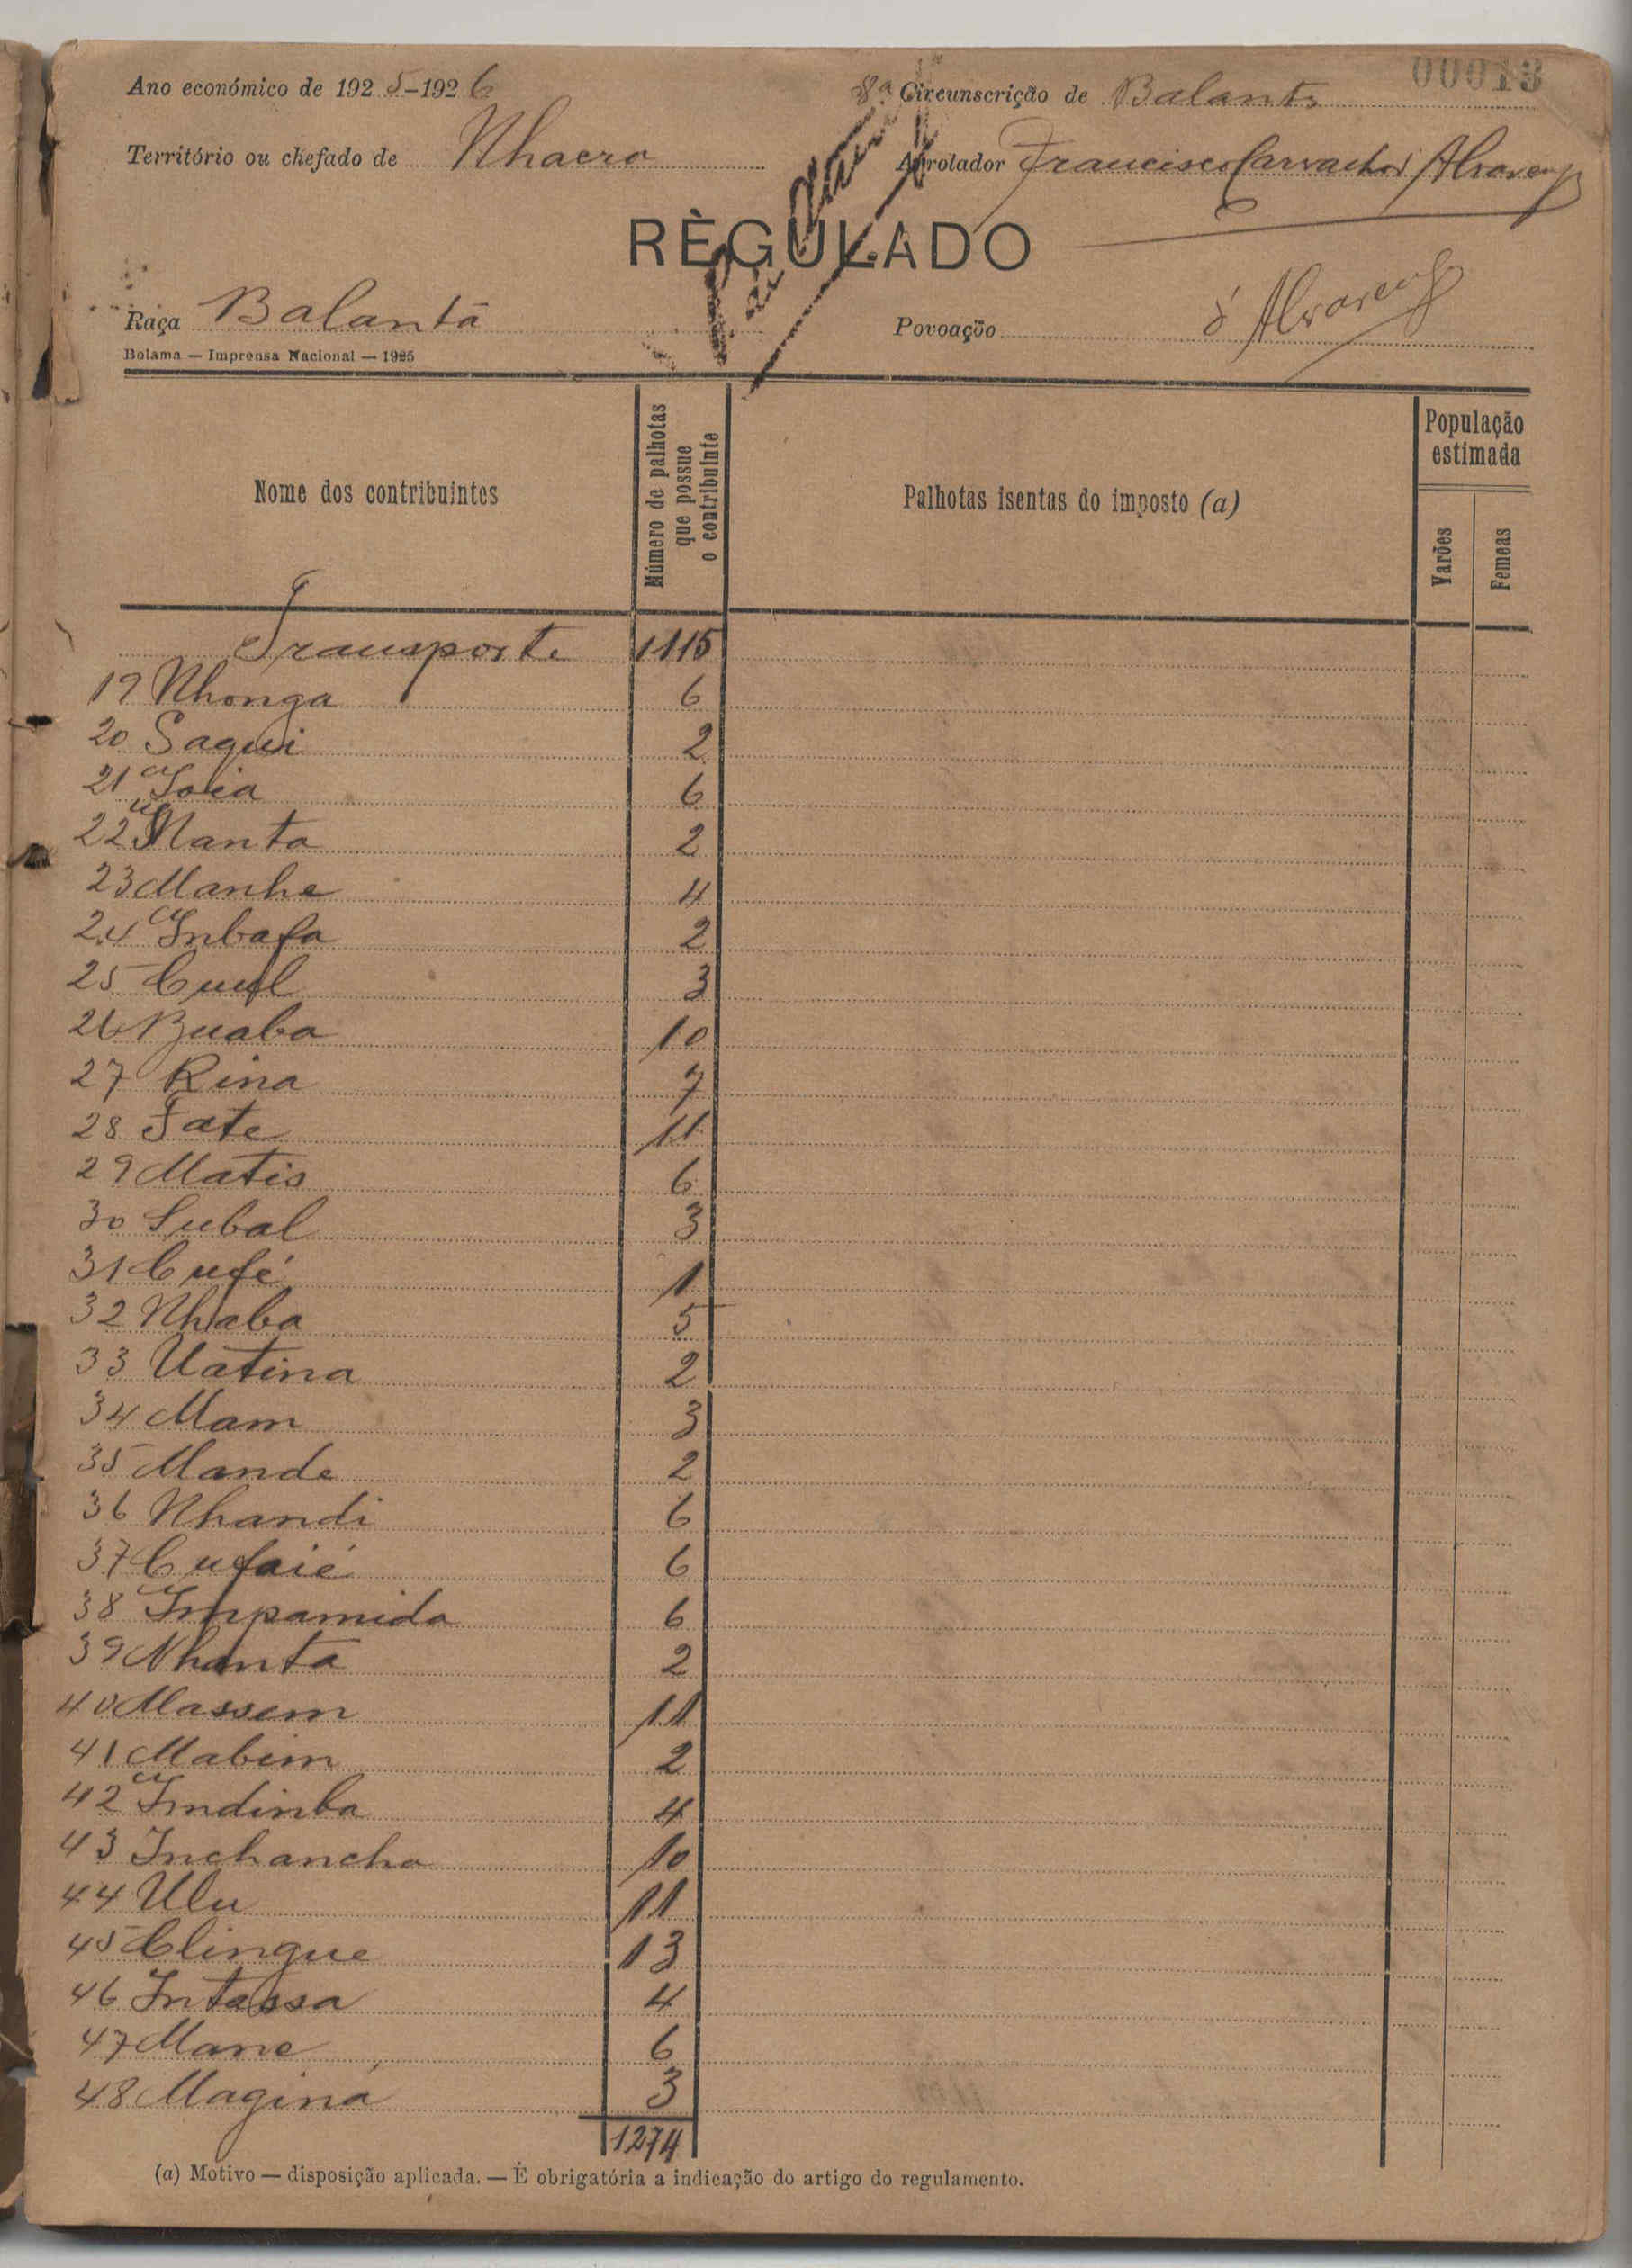 00013
Ano económico de 1925-1926
8ª Circunscrição de Balanta
Território ou chefado de Nhacra
Arrolador Francisco Carvalho Alvarenga
RÈGULADO
Raça Balanta
Povoação
Alvarenga
Bolama — Imprensa Nacional — 1925
Nome dos contribuintes
Número de palhotas que possue o contribuinte
Palhotas isentas do imposto (a)
População estimada
Varões
Femeas
Transporte 1115
19 Nhonga 6
20 Saqui 2
21 Joia 6
22 Nanta 2
23 Manhe 4
24 Inbafa 2
25 3
26 Buaba 10
27 Rina 7
28 Fate 11
29 Matis 6
30 Subal 3
31 Cufé 1
32 Nhaba 5
33 Uatina 2
34 Mam 3
35 Mande 2
36 Nhandi 6
37 Cufaié 6
38 Impamida 6
39 Nhanta 2
40 Massem 11
41 Mabim 2
42 Indinba 4
43 Inchancha 10
44 Ulu 11
45 Clingue 13
46 Intassa 4
47 Mane 6
48 Maginá 3
1274
(a) Motivo — disposição aplicada. — É obrigatória a indicação do artigo do regulamento.